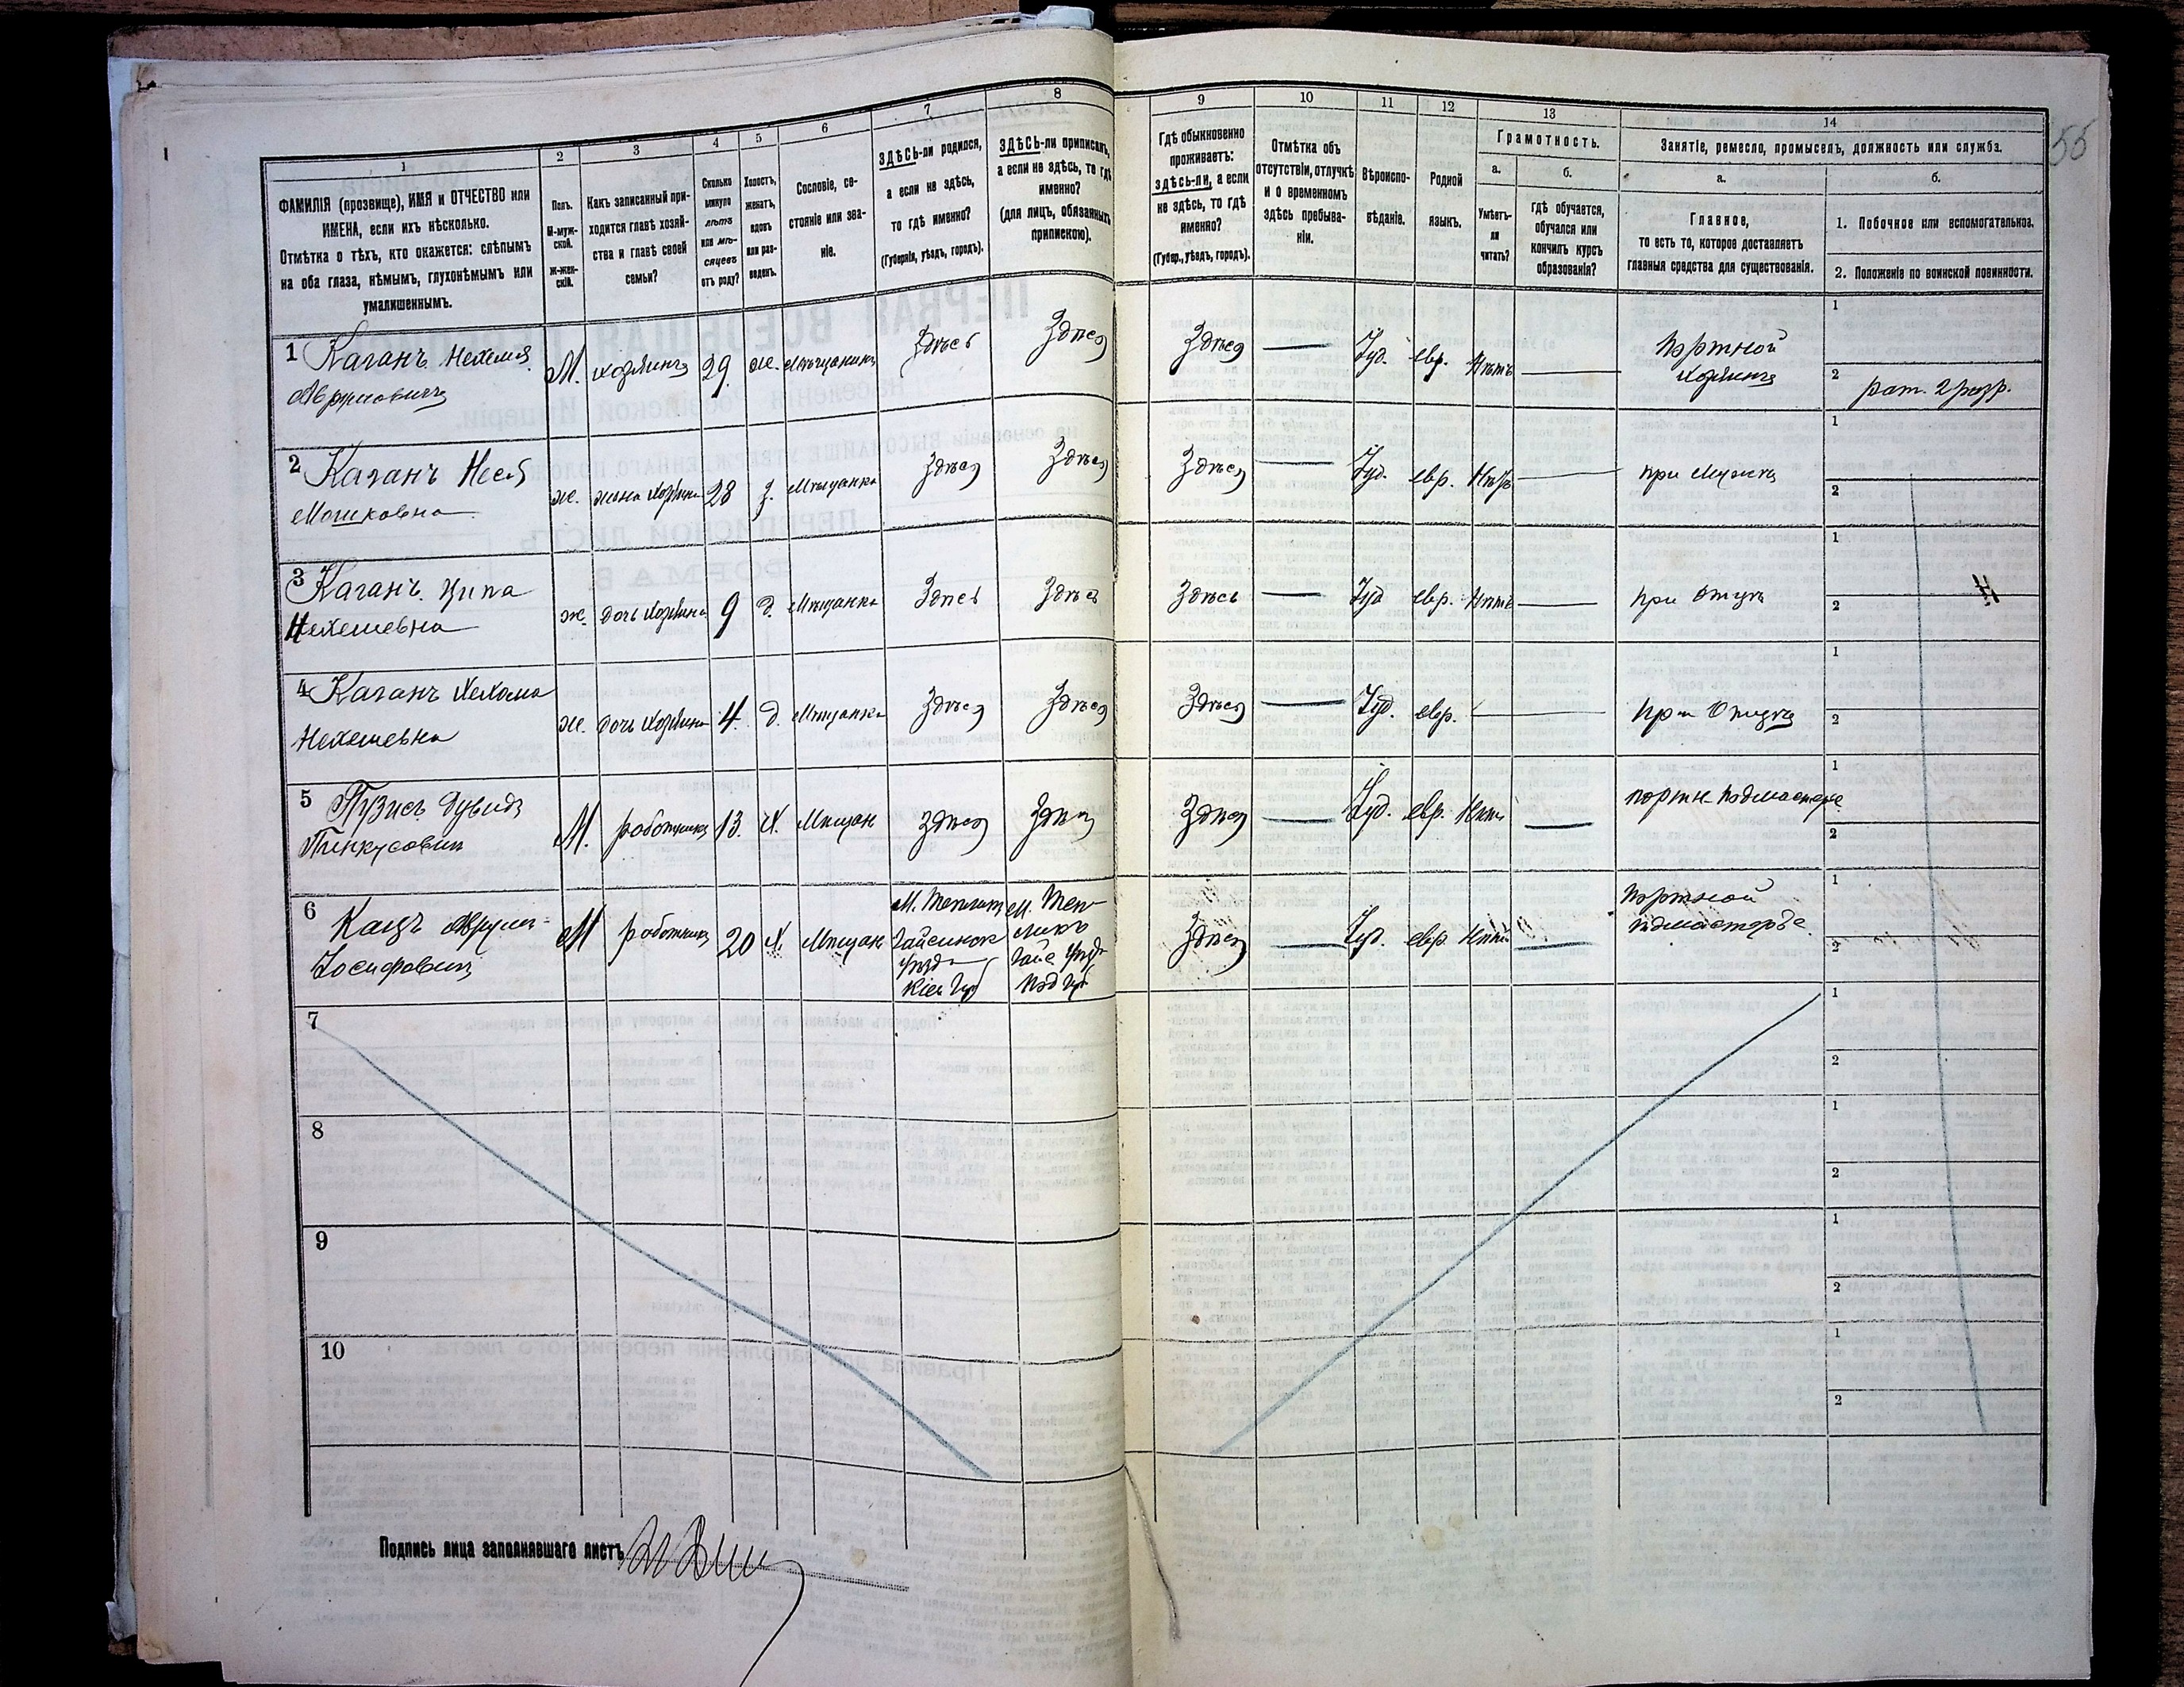 55
1
2
3
4
5
6
7
8
9
10
11
12
13
14
ФАМИЛІЯ (прозвище), ИМЯ и ОТЧЕСТВО или
ИМЕНА, если ихъ нѣсколько.
Отмѣтка о тѣхъ, кто окажется: слѣпымъ
на оба глаза, нѣмымъ, глухонѣмымъ или
умалишеннымъ.
Полъ.
М-муж-
ской.
Ж-жен-
скій.
Какъ записанный при-
ходится главѣ хозяй-
ства и главѣ своей
семьи?
Сколько
минуло
лѣтъ
или мѣ-
сяцевъ
отъ роду?
Холостъ,
женатъ,
вдовъ
или раз-
веденъ.
Сословіе, со-
стояніе или зва-
ніе.
ЗДѢСЬ-ли родился,
а если не здѣсь,
то гдѣ именно?
(Губернія, уѣздъ, городъ).
ЗДѢСЬ-ли приписанъ,
а если не здѣсь, то гдѣ
именно?
(для лицъ, обязанныхъ
припискою).
Гдѣ обыкновенно
проживаетъ:
здѣсь-ли, а если
не здѣсь, то гдѣ
именно?
(Губер., уѣздъ, городъ).
Отмѣтка объ
отсутствіи, отлучкѣ
и о временномъ
здѣсь пребыва-
ніи.
Вѣроиспо-
вѣданіе.
Родной
языкъ.
Грамотность.
а.
Умѣетъ-
ли
читать?
б.
гдѣ обучается,
обучался или
кончилъ курсъ
образованія?
Занятіе, ремесло, промыселъ, должность или служба.
а.
Главное,
то есть то, которое доставляетъ
главныя средства для существованія.
б.
1. Побочное или вспомогательное.
2. Положеніе по воинской повинности.
1 Каганъ Нехемія
Аврумовичъ
М. хозяинъ 29 ж. Мѣщанинъ Здѣсь Здѣсь Здѣсь Іуд. евр. Нѣтъ
Портной
хозяинъ
1
2 рат. 2 разр.
2 Каганъ Нееся
Мошковна
ж. жена хозяина 28 з. Мѣщанка Здѣсь Здѣсь Здѣсь Іуд. евр. Нѣтъ при мужѣ
1
2
3 Каганъ Ципа
Нехемевна
ж. дочь хозяина 9 д. Мѣщанка Здѣсь Здѣсь Здѣсь Іуд евр. Нѣтъ при отцѣ
1
2
Н
4 Каганъ
Нехемевна
ж. дочь хозяина 4 д. Мѣщанка Здѣсь Здѣсь Здѣсь Іуд. евр. при отцѣ
1
2
5 Пузисъ Дувидъ
Пинкусович
М. работникъ 13. Х. Мѣщан Здѣсь Здѣсь Здѣсь Іуд. евр. Нѣтъ портн. подмастерье
1
2
6 Кацъ Аврумъ
Іосифовичъ
М работникъ 20 Х. Мѣщан
М. Тепликъ
Гайсинск
уѣзда
Кіев Губ
М. Теп-
ликъ
Гайс уѣзд
Под Губ
Здѣсь Іуд. евр. Нѣтъ
Портной
подмастерье
1
2
7
1
2
8
1
2
9
1
2
10
1
2
Подпись лица заполнявшаго листъ